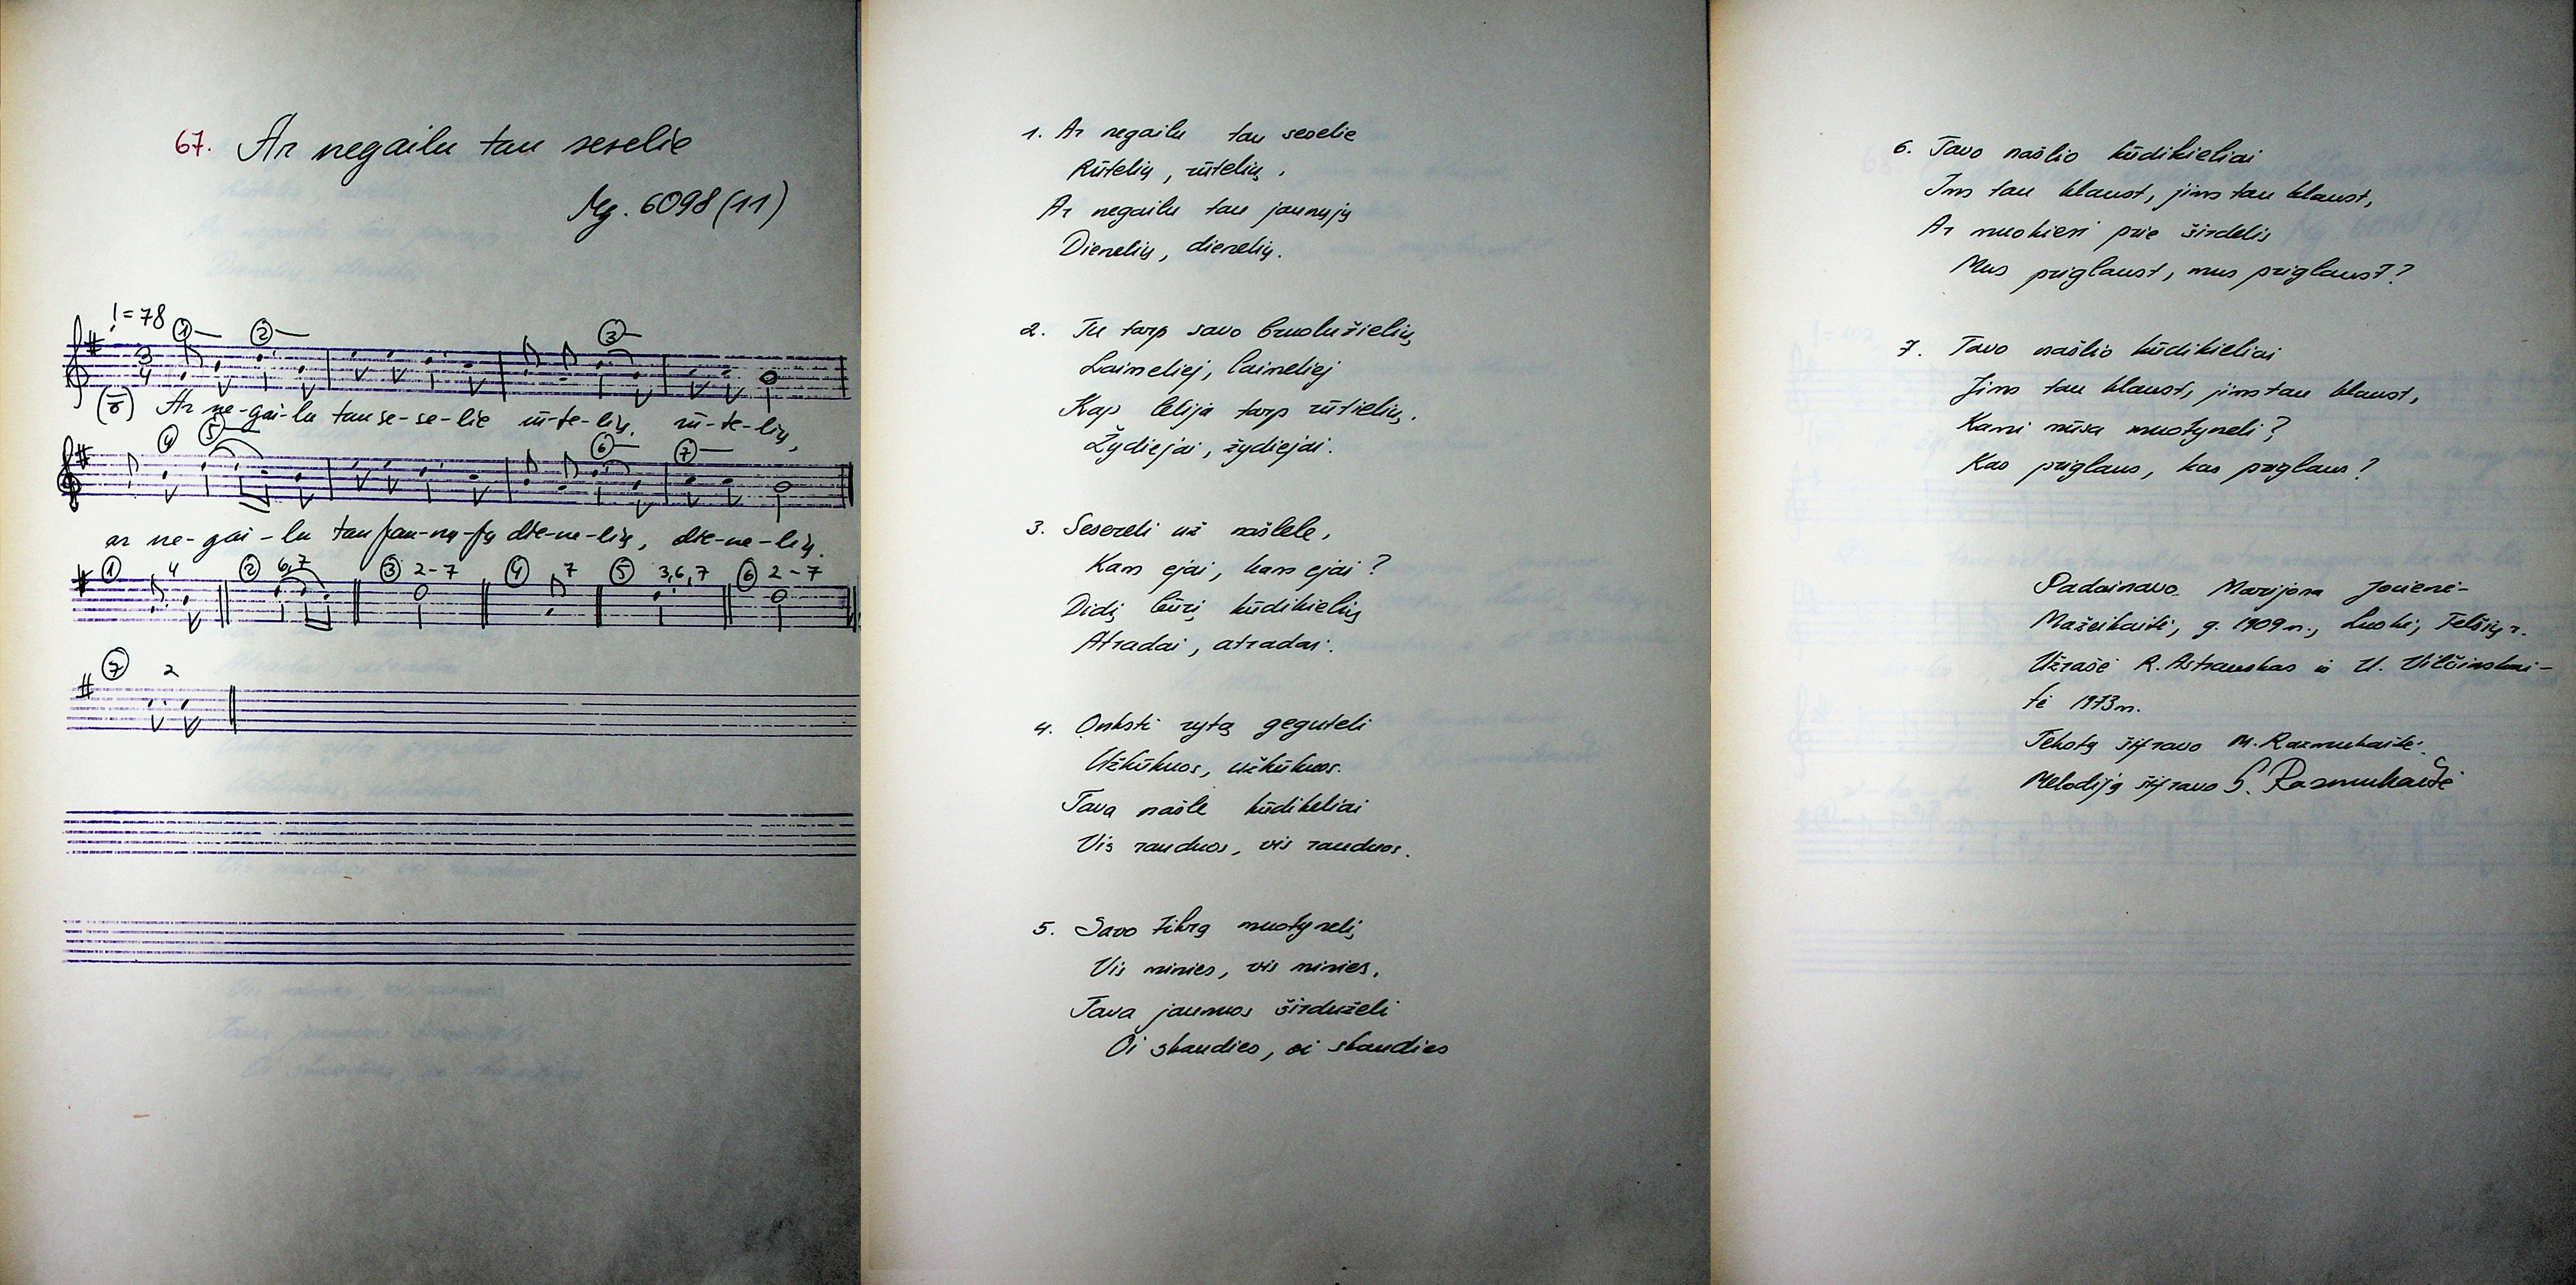 67. Ar negailu tau seselie
Mg. 6098 (11)
♩ = 78 ① ② ③
3
4
Ar ne-gai-lu tau se-se-lie rū-te-lių, rū-te-lių,
④ ⑤ ⑥ ⑦
ar ne-gai-lu tau jau-nų-jų die-ne-lių, die-ne-lių.
① 4 ② 6,7 ③ 2-7 ④ 7 ⑤ 3,6,7 ⑥ 2-7
⑦ 2
1. Ar negailu tau seselie
Rūtelių, rūtelių,
Ar negailu tau jaunųjų
Dienelių, dienelių.
2. Tu tarp savo bruolužielių
Laimeliej, laimeliej
Kap lelija tarp rūtielių,
Žydiejai, žydiejai.
3. Sesereli už našlele,
Kam ejai, kam ejai?
Didį būrį kūdikielių
Atradai, atradai.
4. Onksti rytą geguteli
Užkūkuos, užkūkuos.
Tava našle kūdikeliai
Vis rauduos, vis rauduos.
5. Savo tikrą muotynelį
Vis minies, vis minies,
Tava jaunuos širduželi
Oi skaudies, oi skaudies
6. Tavo našlio kūdikieliai
Jms tau klaust, jims tau klaust,
Ar nuokieri prie širdelis
Mus priglaust, mus priglaust?
7. Tavo našlio kūdikieliai
Jims tau klaust, jims tau klaust,
Kami mūsa muotyneli?
Kas priglaus, kas priglaus?
Padainavo Marijona Jocienė-
Mažeikaitė, g. 1909 m., Luokė, Telšių r.
Užrašė R. Astrauskas ir U. Vilčinskai-
tė 1973 m.
Tekstą šifravo M. Razmukaitė.
Melodiją šifravo S. Razmukaitė